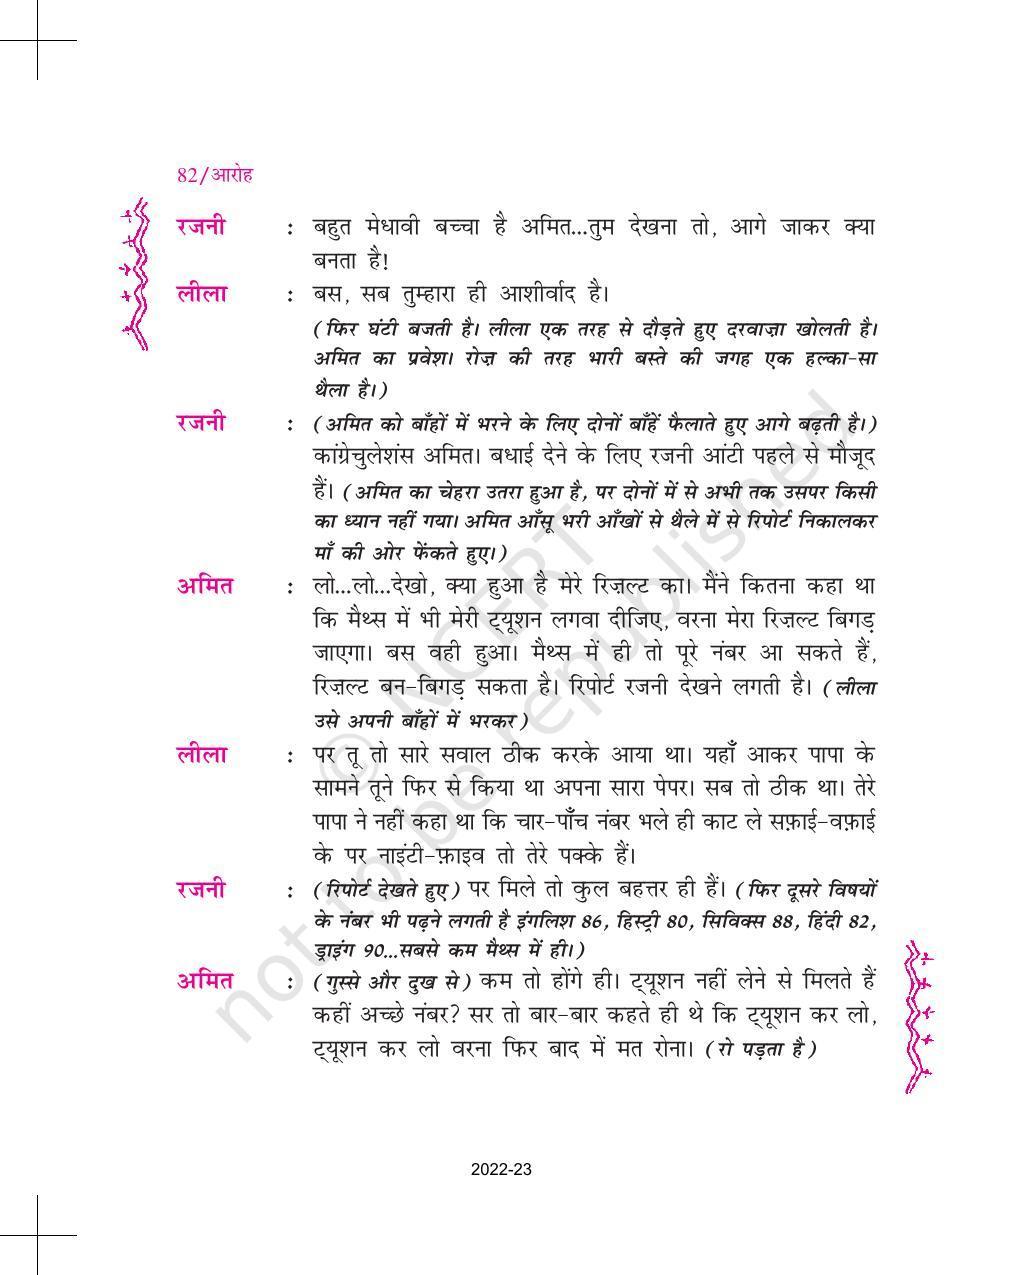 82/आरोह
रजनी : बहुत मेधावी बच्चा है अमित...तुम देखना तो, आगे जाकर क्या
बनता है!
लीला : बस, सब तुम्हारा ही आशीर्वाद है।
(फिर घंटी बजती है। लीला एक तरह से दौड़ते हुए दरवाज़ा खोलती है।
अमित का प्रवेश। रोज़ की तरह भारी बस्ते की जगह एक हल्का-सा
थैला है।)
रजनी : (अमित को बाँहों में भरने के लिए दोनों बाँहें फैलाते हुए आगे बढ़ती है।)
कांग्रेचुलेशंस अमित। बधाई देने के लिए रजनी आंटी पहले से मौजूद
हैं। (अमित का चेहरा उतरा हुआ है, पर दोनों में से अभी तक उसपर किसी
का ध्यान नहीं गया। अमित आँसू भरी आँखों से थैले में से रिपोर्ट निकालकर
माँ की ओर फेंकते हुए।)
अमित : लो...लो...देखो, क्या हुआ है मेरे रिज़ल्ट का। मैंने कितना कहा था
कि मैथ्स में भी मेरी ट्यूशन लगवा दीजिए, वरना मेरा रिज़ल्ट बिगड़
जाएगा। बस वही हुआ। मैथ्स में ही तो पूरे नंबर आ सकते हैं,
रिज़ल्ट बन-बिगड़ सकता है। रिपोर्ट रजनी देखने लगती है। (लीला
उसे अपनी बाँहों में भरकर)
लीला : पर तू तो सारे सवाल ठीक करके आया था। यहाँ आकर पापा के
सामने तूने फिर से किया था अपना सारा पेपर। सब तो ठीक था। तेरे
पापा ने नहीं कहा था कि चार-पाँच नंबर भले ही काट ले सफ़ाई-वफ़ाई
के पर नाइंटी-फ़ाइव तो तेरे पक्के हैं।
रजनी : (रिपोर्ट देखते हुए) पर मिले तो कुल बहत्तर ही हैं। (फिर दूसरे विषयों
के नंबर भी पढ़ने लगती है इंगलिश 86, हिस्ट्री 80, सिविक्स 88, हिंदी 82,
ड्राइंग 90...सबसे कम मैथ्स में ही।)
अमित : (गुस्से और दुख से) कम तो होंगे ही। ट्यूशन नहीं लेने से मिलते हैं
कहीं अच्छे नंबर? सर तो बार-बार कहते ही थे कि ट्यूशन कर लो,
ट्यूशन कर लो वरना फिर बाद में मत रोना। (रो पड़ता है)
© NCERT
not to be republished
2022-23